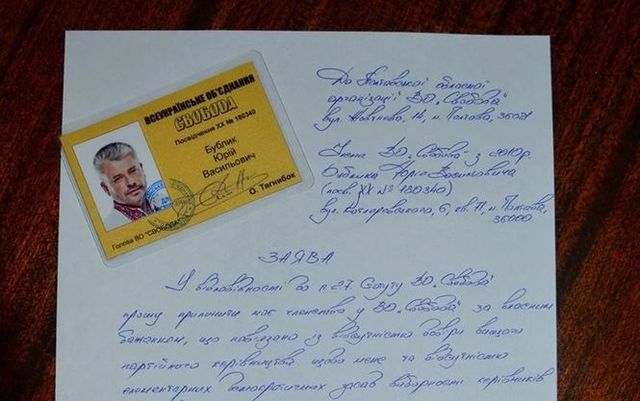 ВСЕУКРАЇНСЬКЕ ОБ'ЄДНАННЯ
СВОБОДА
Посвідчення ХХ № 180340
Бублик
Юрій
Васильович
О. Тягнибок
Голова ВО "СВОБОДА"
До Полтавської обласної
організації ВО „Свобода"
вул. 14, м. Полтава, 36021
Члена ВО „Свобода" з 2010р
Бублика Юрія Васильовича
(посв. ХХ № 180340)
вул. Котляревського, 6, кв. 71, м. Полтава,
36000
ЗАЯВА
У відповідності до п. 27 Статуту ВО „Свобода"
прошу припинити моє членство у ВО „Свобода" за власним
бажанням, що пов'язано із відсутністю довіри вищого
партійного керівництва щодо мене та відсутністю
елементарних демократичних засад виборності керівників